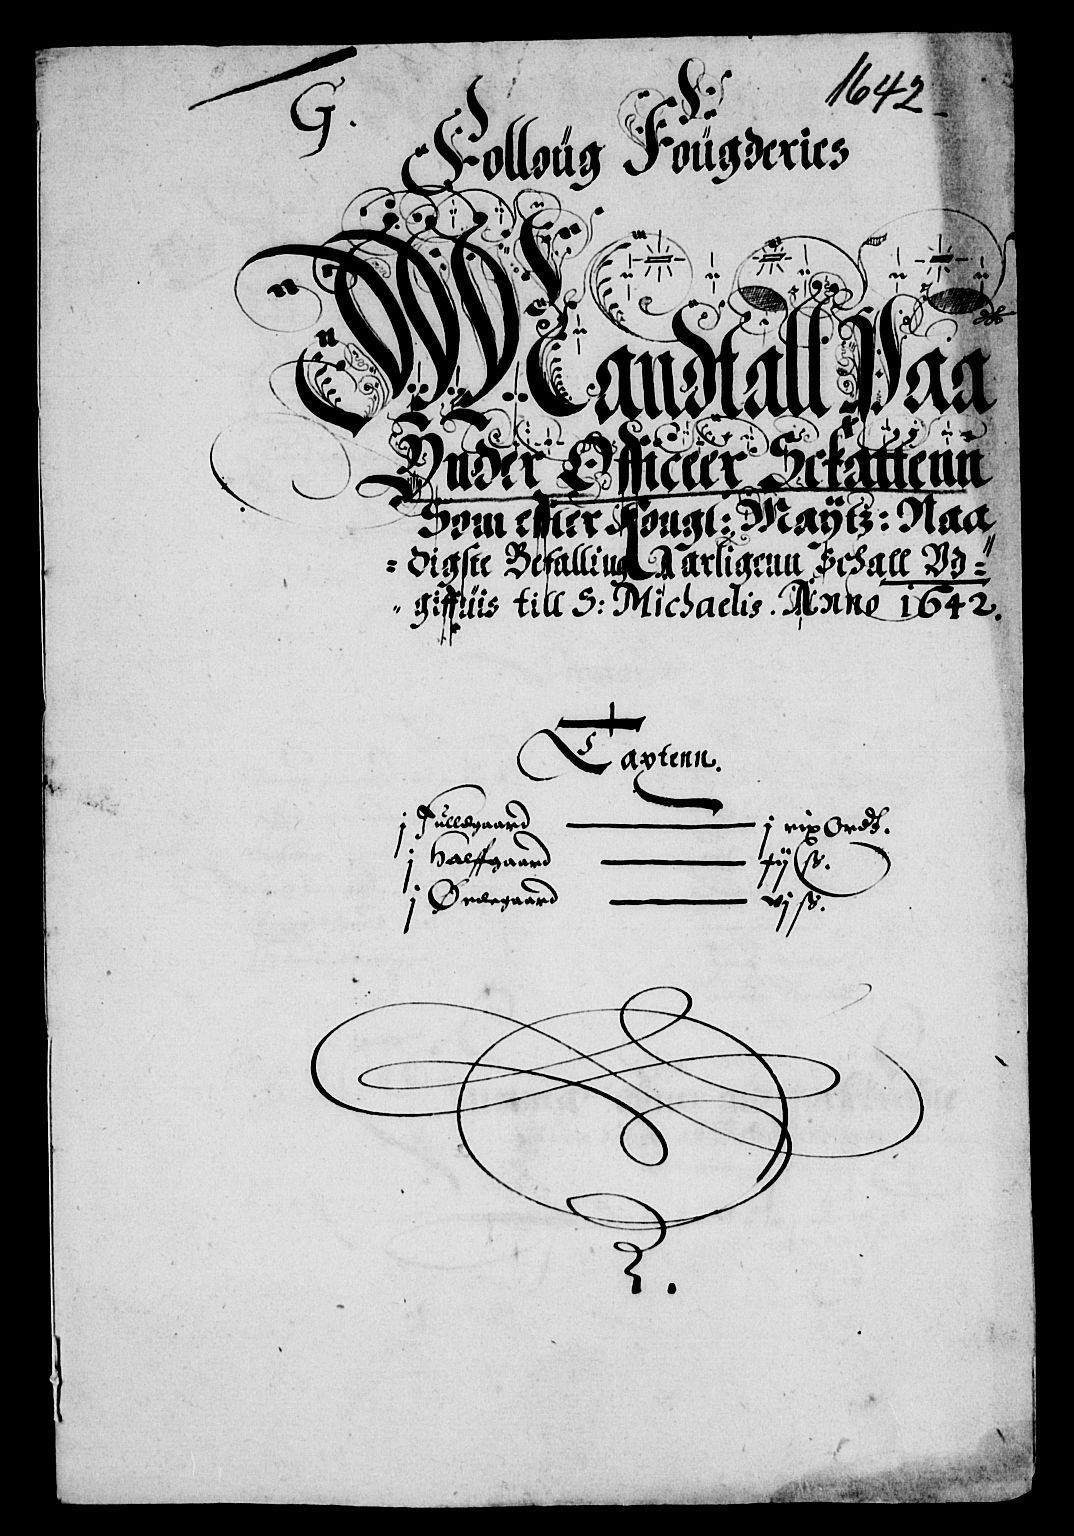 G.
1642
Folloüg Foügderies
Mandtall Paa
Vnder Officeer Sckattenn
Som effter Kongl: Maÿtz: Naa
= digste Befalling Aarligenn Schall Vd=
" giffüis till S: Michaelis. Anno 1642.
Taxtenn.
j Fulldgaard — j rix Ordt.
j Halffgaard — ß.
j Ødegaard — vj ß.